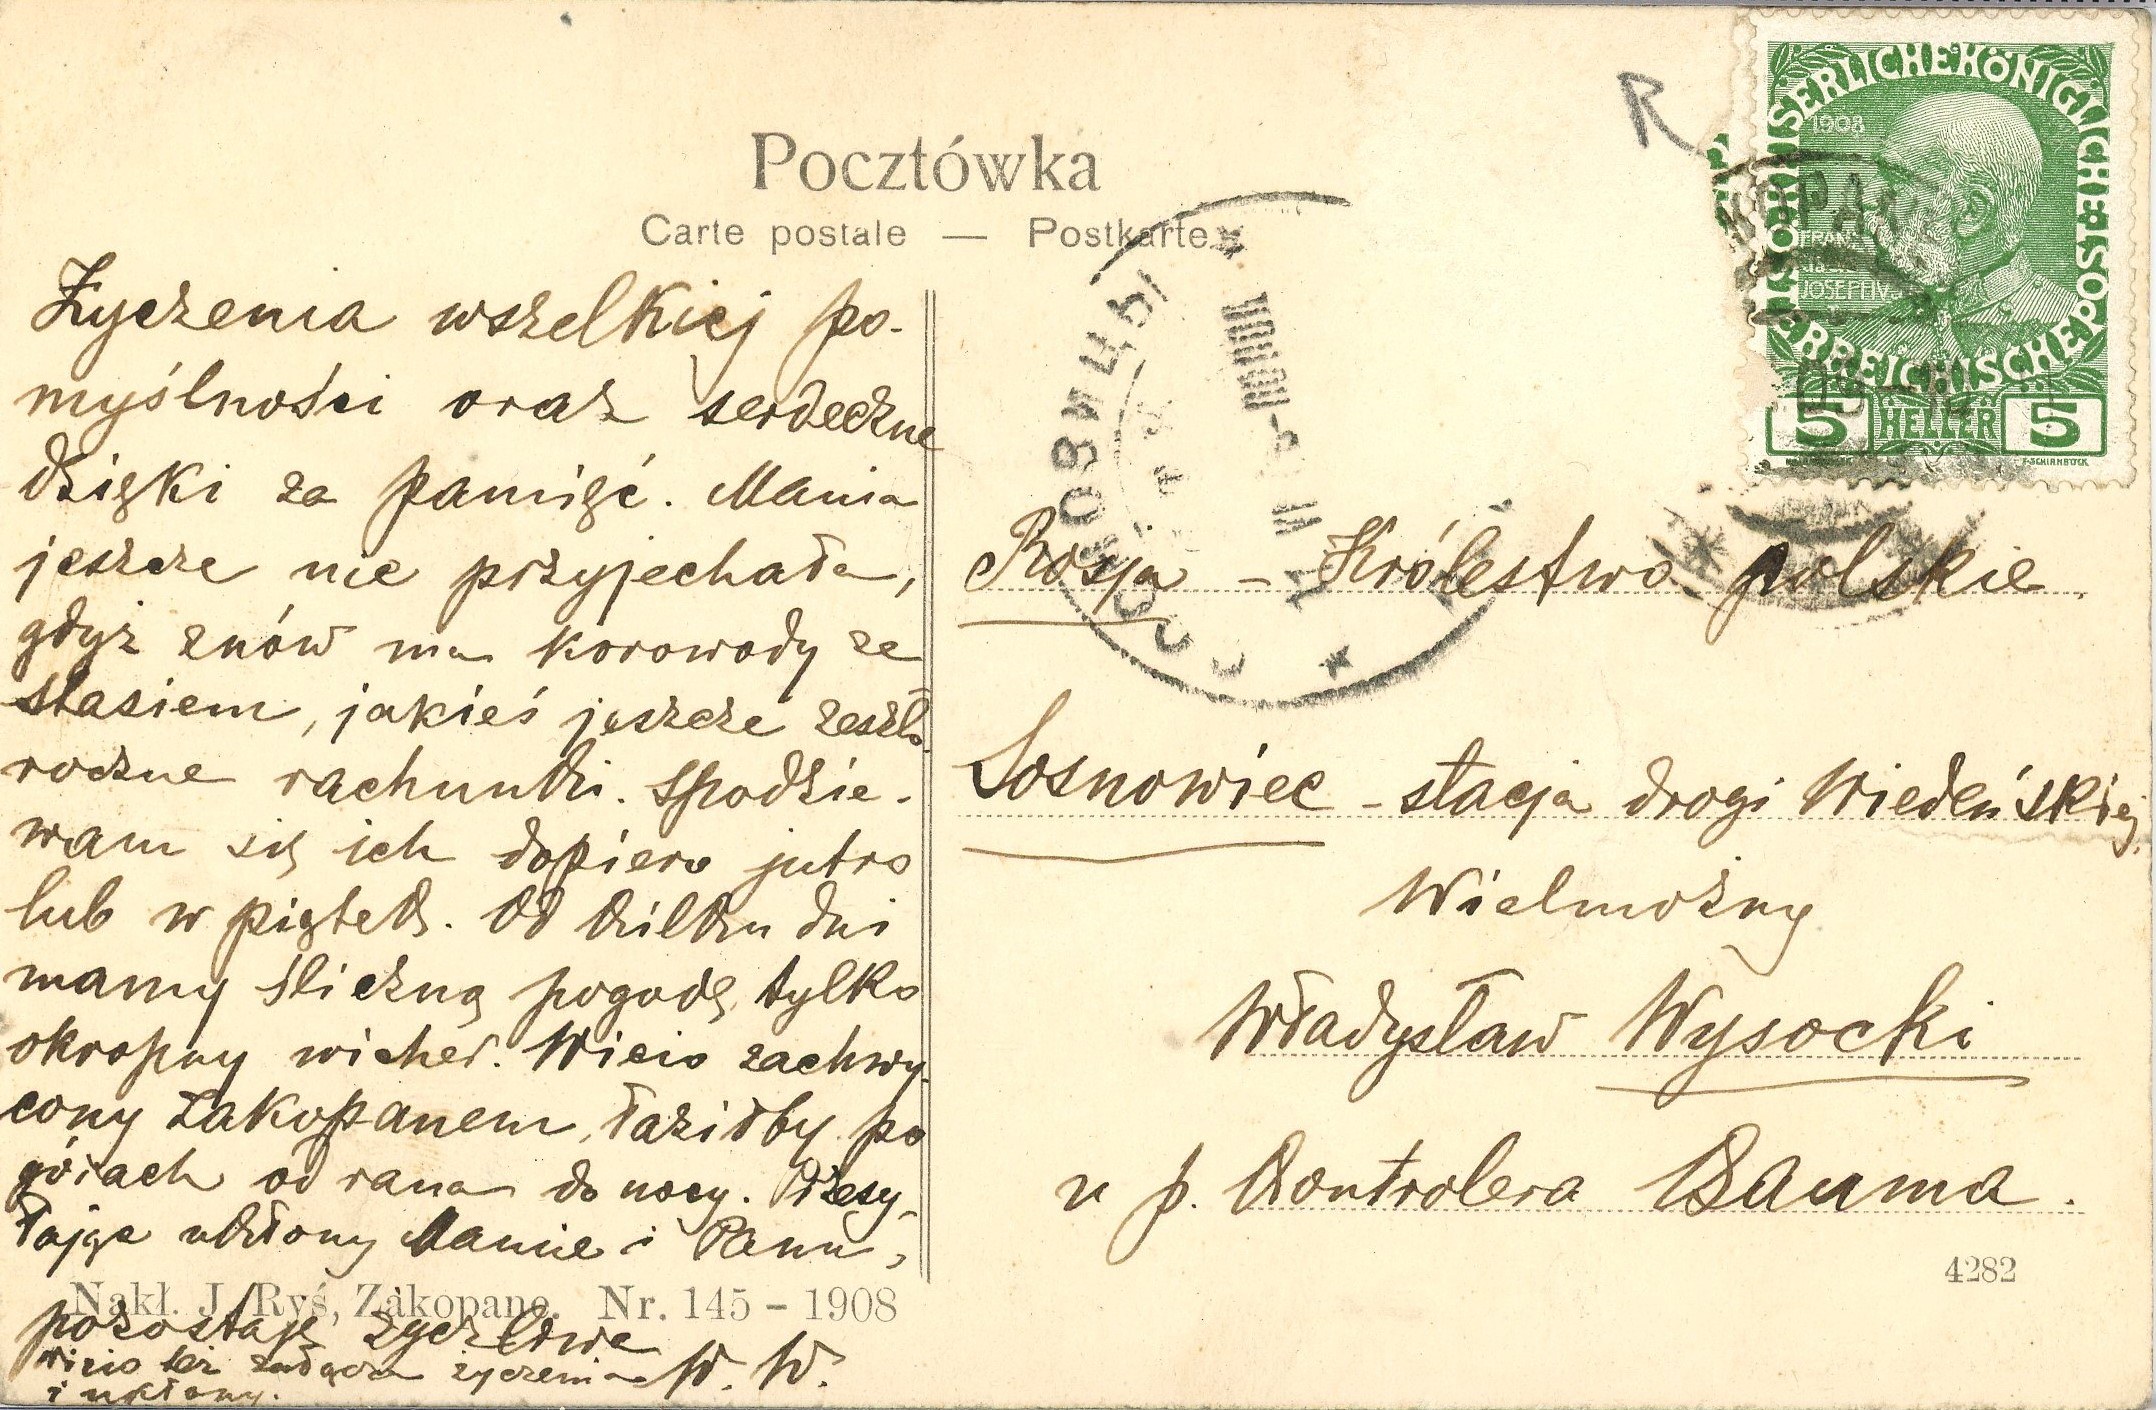 Pocztówka
Carte postale — Postkarte
Życzenia wszelkiej po-
myślności oraz serdeczne
dzięki za pamięć. Mania
jeszcze nie przyjechała,
gdyż znów ma korowody ze
Stasiem, jakieś jeszcze zeszło
roczne rachunki. Spodzie-
wam się ich dopiero jutro
lub w piątek. Od kilku dni
mamy śliczną pogodę, tylko
okropny wicher. Wicio zachwy-
cony Zakopanem, łaziłby po
górach od rana do nocy. Przesy-
łając ukłony Mamie i Panu,
Nakł. J. Ryś, Zakopane. Nr. 145 – 1908
pozostaję życzliwa
W. W.
Wicio też załącza życzenia
i ukłony.
R
KAISERLICHE KÖNIGLICHE ÖSTERREICHISCHE POST
1908
FRANZ
JOSEPH I
5 HELLER 5
СОСНОВИЦЫ
Rosja – Królestwo polskie.
Sosnowiec – stacja drogi Wiedeńskiej.
Wielmożny
Władysław Wysocki
u p. Kontrolera Bauma.
4282